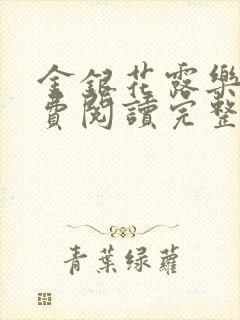 金銀花露樂
費閱讀完整
青葉綠蘿